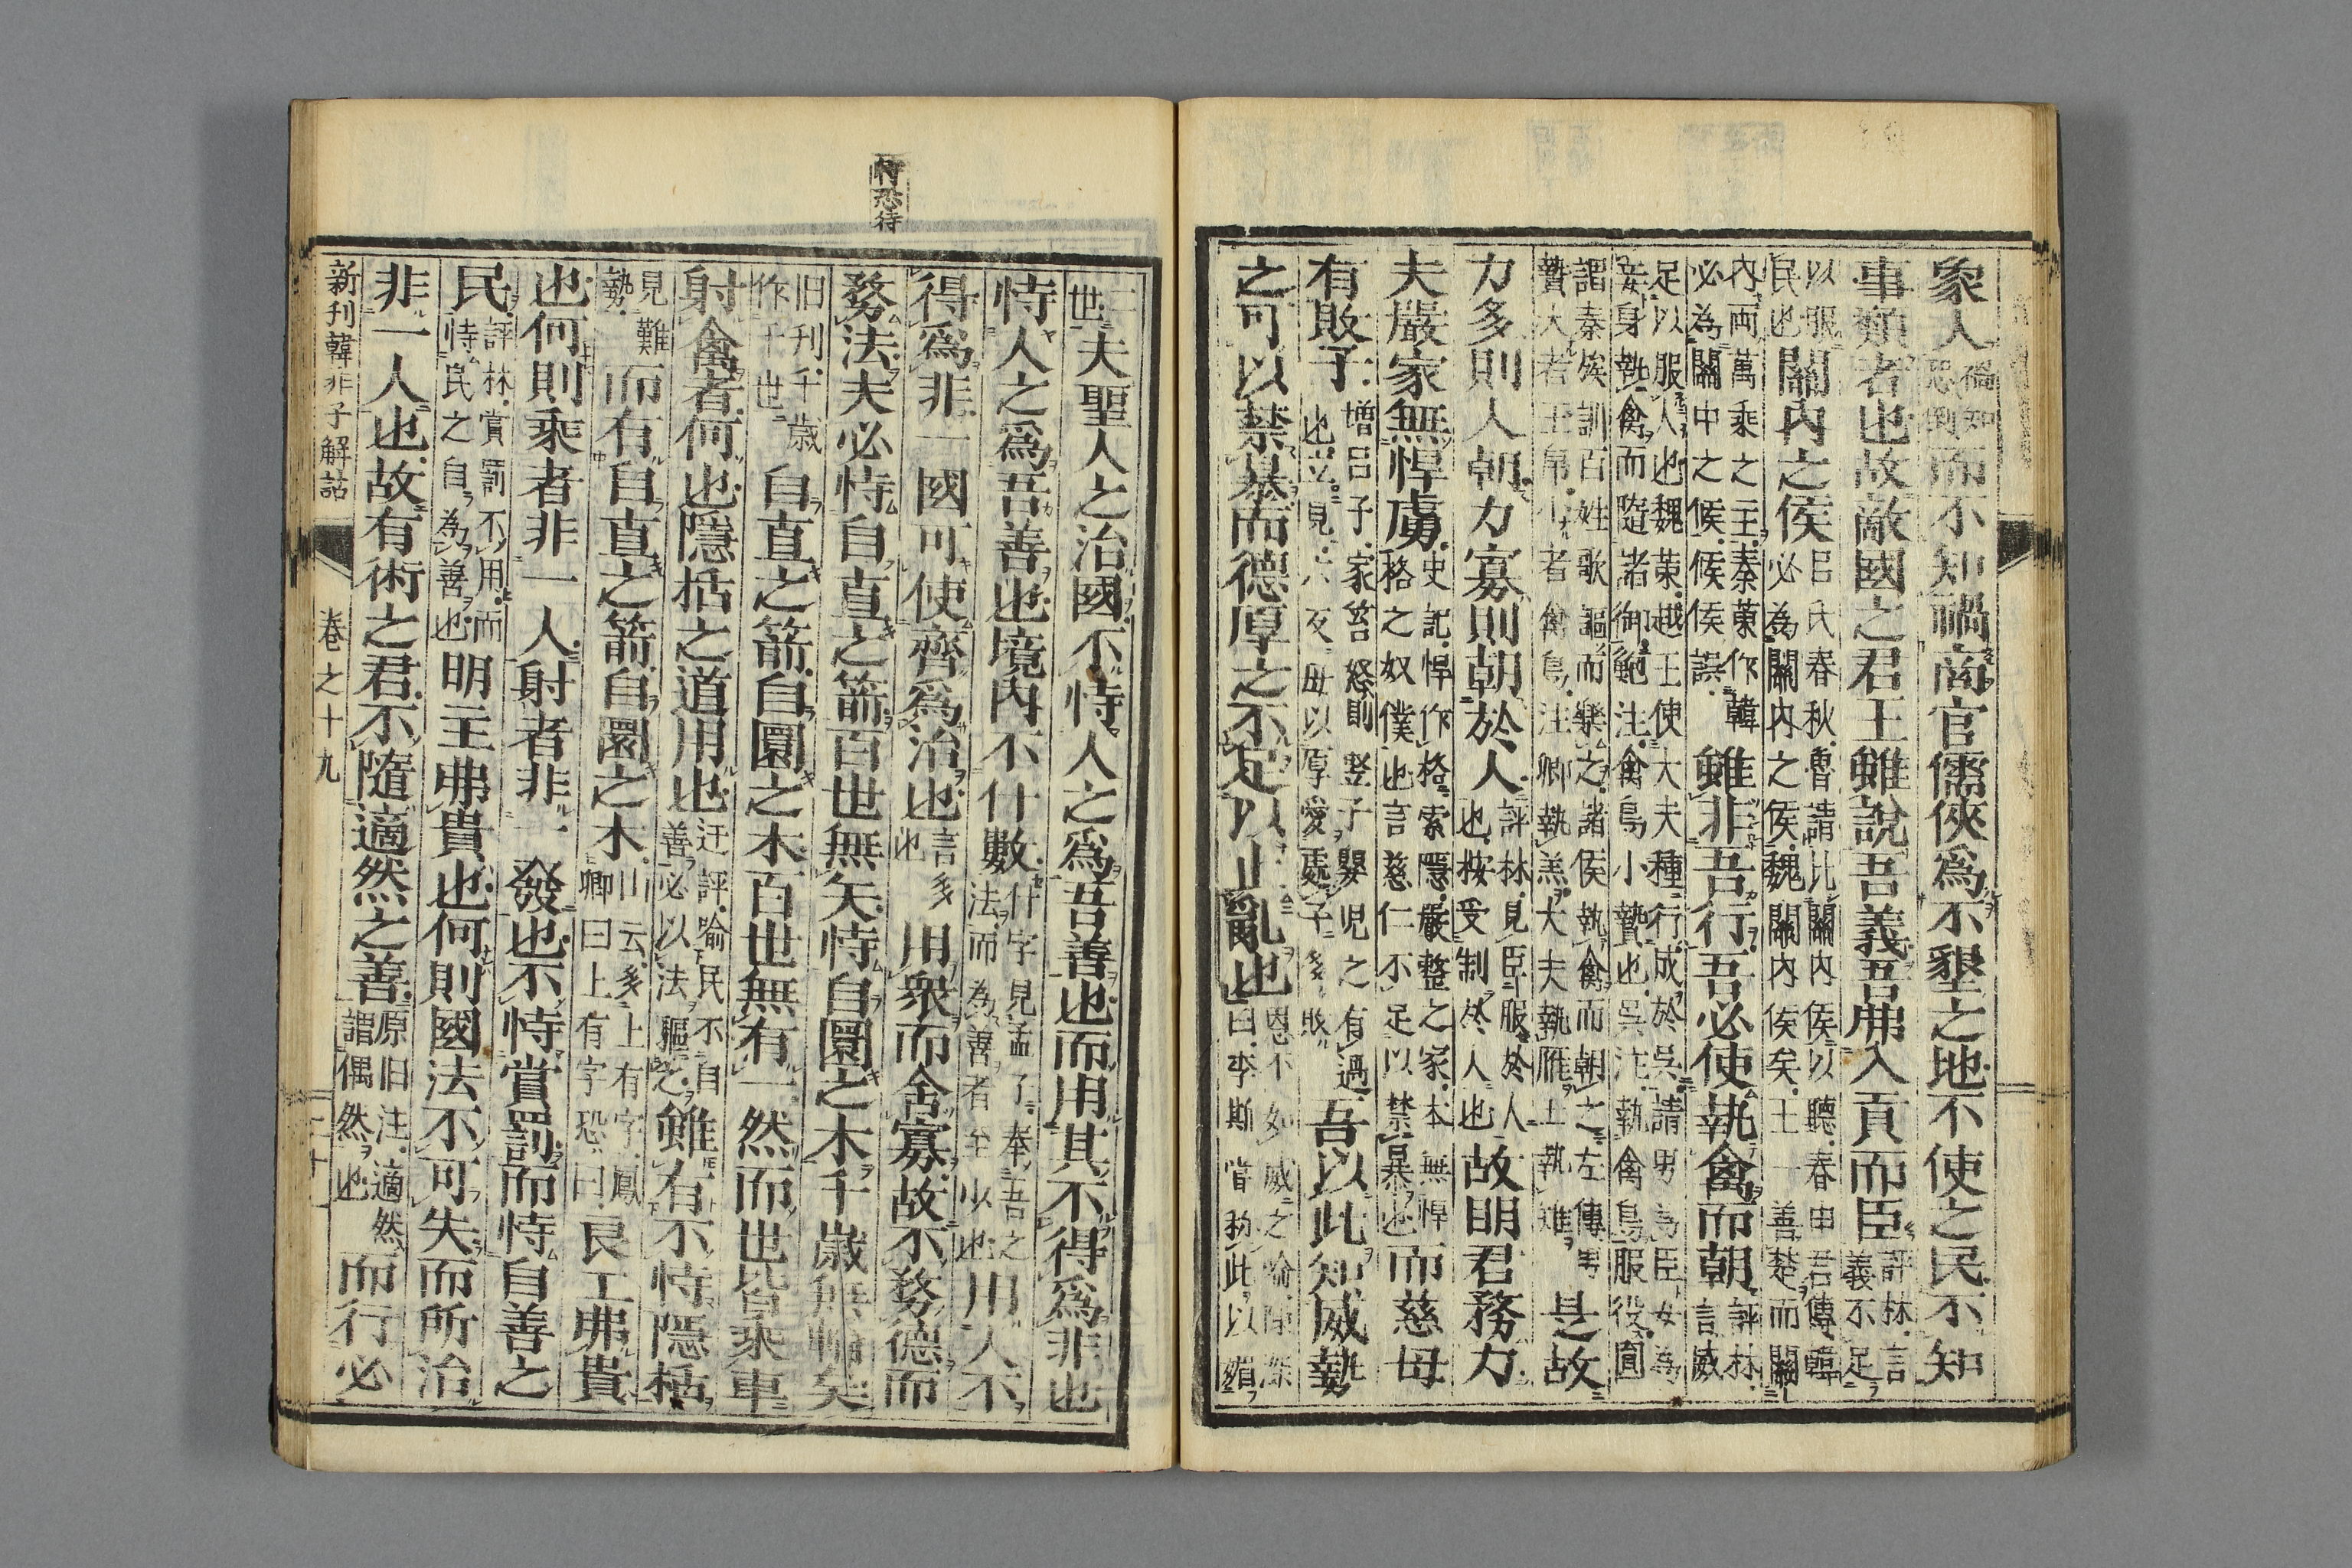 象人禍知恐倒而不知禍商官儒俠爲不墾之地不使之民不知
事類者也故敵國之君王雖說吾義吾弗入貢而臣評林言義不足
以服民也關內之侯呂氏春秋魯請比關內侯以聽春申君傳臨必為關內之侯魏關內侯矣王一善楚而關
內兩萬乘之主秦策作韓必為關中之候候侯誤雖非吾行吾必使執禽而朝評林言威
足以服人也魏策越王使大夫種行成於吳請男為臣女為妾身執禽而隨諸御鮑注禽鳥小贄也吳注執禽鳥服役圓
謂秦族訓百姓歌謳而樂之諸侯執禽而朝之左傳男贄大者玉帛小者禽鳥注卿執羔大夫執雁士執雉是故
力多則人朝力寡則朝於人評林見臣服於人也按受制於人也故明君務力
夫嚴家無悍虜史記悍作格索隱嚴整之家本無悍格之奴僕也言慈仁不足以禁暴也而慈母
有敗子增呂子家笞怒則豎子嬰兒之有過也立見六反母以厚愛處子多敗吾以此知威勢
之可以禁暴而德厚之不足以止亂也恩不如威之喻除深曰李斯嘗約此以絹
恃恐待
夫聖人之治國不恃人之爲吾善也而用其不得爲非也
恃人之爲吾善也境內不什數什字見孟子奉吾之法而為善者至少也用人不
得爲非一國可使齊爲治也言多也用衆而舍寡故不務德而
務法夫必恃自直之箭百世無矢恃自圜之木千歲無輪矣
旧刊千歲作千世自直之箭自圜之木百世無有一然而世皆乘車
射禽者何也隱栝之道用也迂評喻民不自善必以法驅之雖有不恃隱栝
見難勢而有自直之箭自圜之木山云多上有字鳳卿曰上有字恐曰良工弗貴
也何則乘者非一人射者非一發也不恃賞罰而恃自善之
民評林賞罰不用而恃民之自為善也明主弗貴也何則國法不可失而所治
非一人也故有術之君不隨適然之善原旧注適然謂偶然也而行必
新刊韓非子解詁
卷之十九
二十一